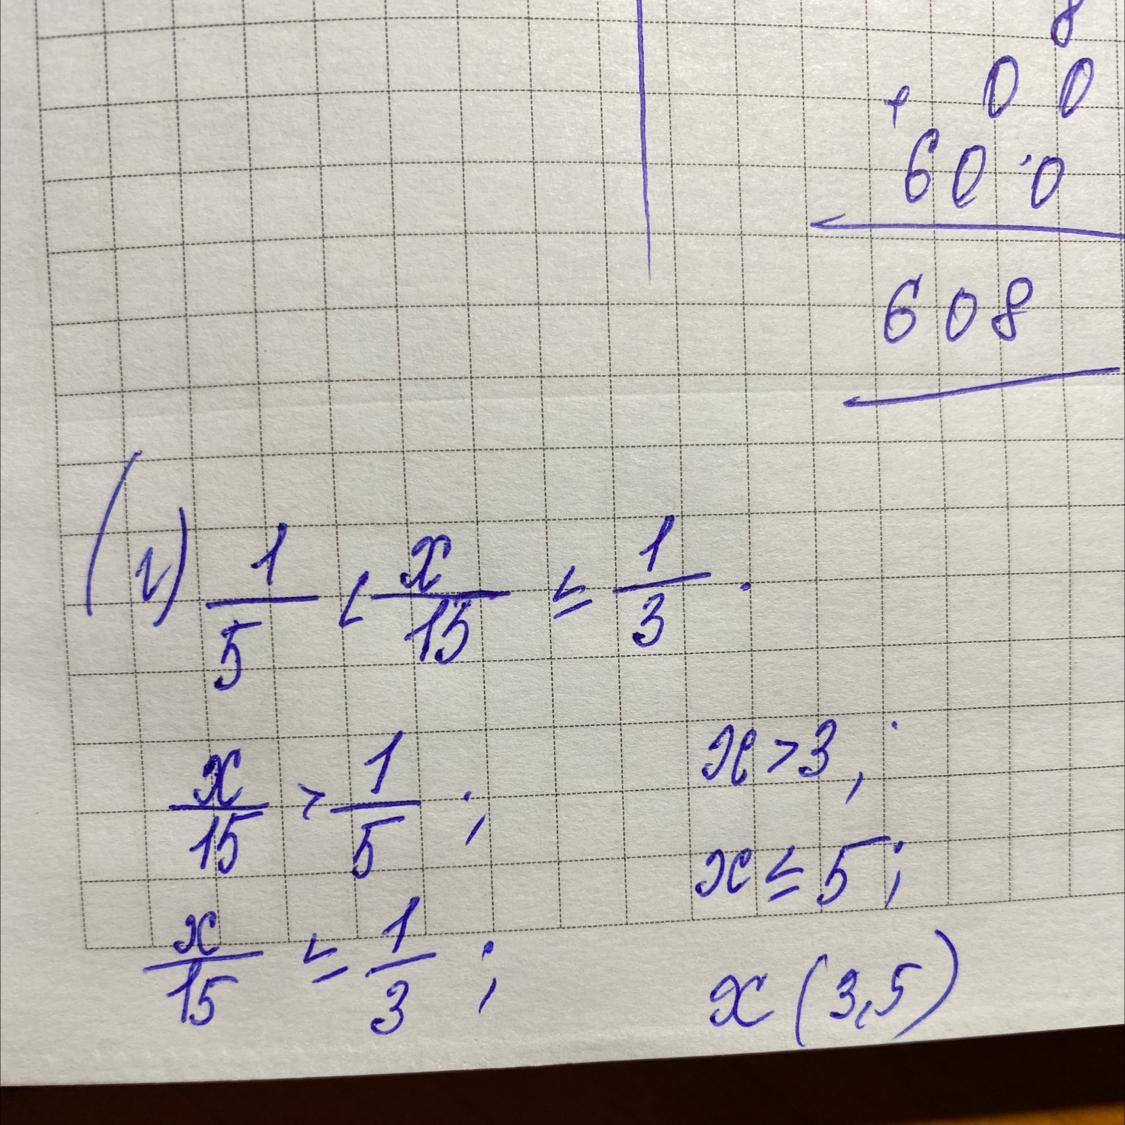 8
+ 0 0
6 0 0
6 0 8
г) 1/5 < x/15 ≤ 1/3.
x/15 > 1/5 ;
x > 3 ;
x/15 ≤ 1/3 ;
x ≤ 5 ;
x (3,5)